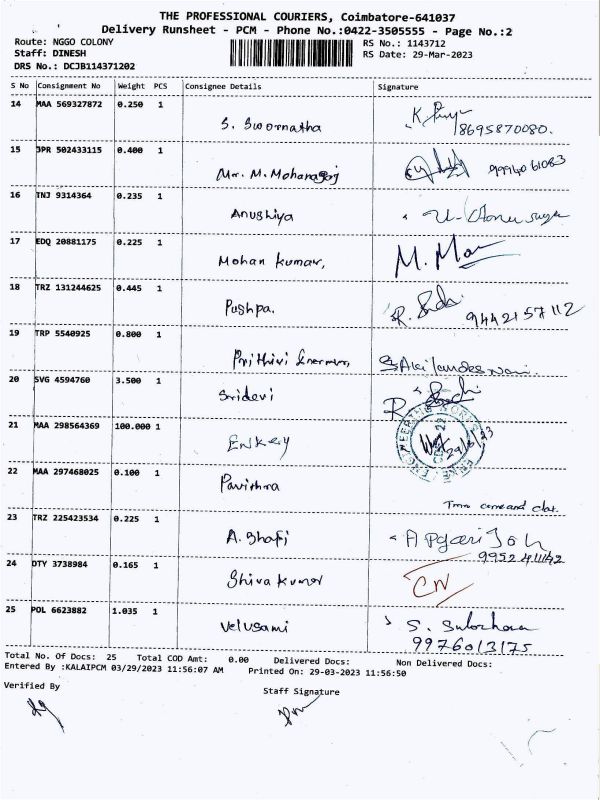 THE PROFESSIONAL COURIERS, Coimbatore-641037
Delivery Runsheet - PCM - Phone No.:0422-3505555 - Page No.:2
Route: NGGO COLONY RS No.: 1143712
Staff: DINESH RS Date: 29-Mar-2023
DRS No.: DCJB114371202
S No Consignment No Weight PCS Consignee Details Signature
14 MAA 569327872 0.250 1
S. Swornatha 8695870080.
15 JPR 502433115 0.400 1
Mr. M. Mohanaraj 9994061083
16 TNJ 9314364 0.235 1
Anushiya
17 EDQ 20881175 0.225 1
Mohan kumar, M. Mo
18 TRZ 131244625 0.445 1
Pushpa. R. 9442157112
19 TRP 5540925 0.800 1
Prithivi S Akilandeswari.
20 SVG 4594760 3.500 1
Sridevi R
21 MAA 298564369 100.000 1
Enkey 29/3/23
22 MAA 297468025 0.100 1
Pavithra
23 TRZ 225423534 0.225 1
A. Shafi
24 DTY 3738984 0.165 1
Shiva kumar CN
25 POL 6623882 1.035 1
Velusami S. Sulochana
9976013175
Total No. Of Docs: 25 Total COD Amt: 0.00 Delivered Docs: Non Delivered Docs:
Entered By :KALAIPCM 03/29/2023 11:56:07 AM Printed On: 29-03-2023 11:56:50
Verified By Staff Signature